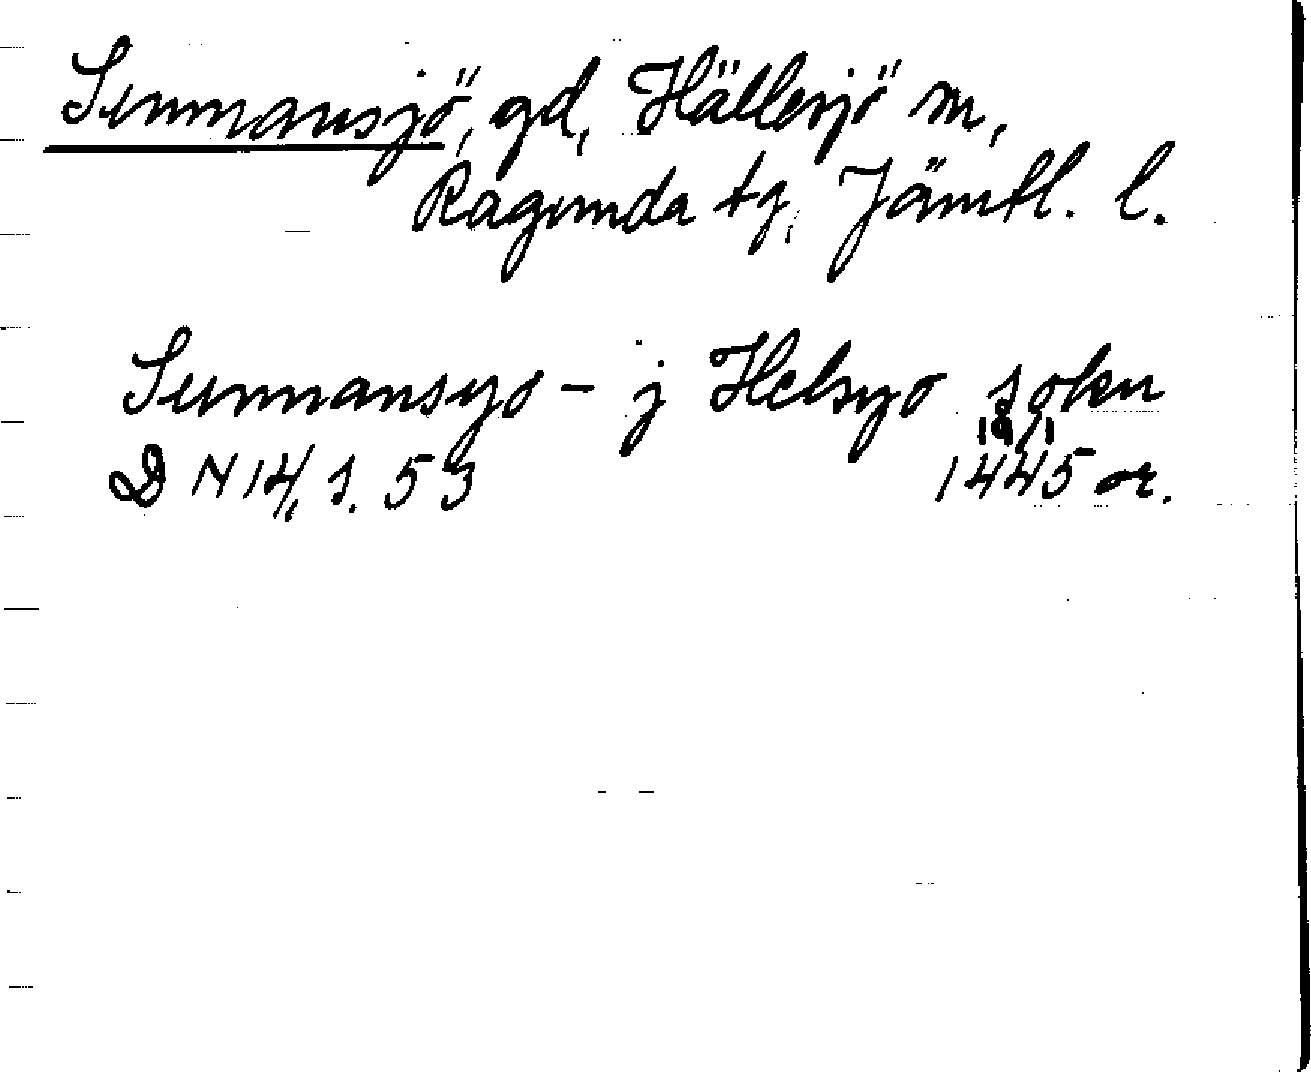 Sunnansjö, gd, Hällesjö sn,
Ragunda tg, Jämtl. l.
Sunnansyo – j Helsyo sokn
19/1
DN 14, s. 53 1445 or.